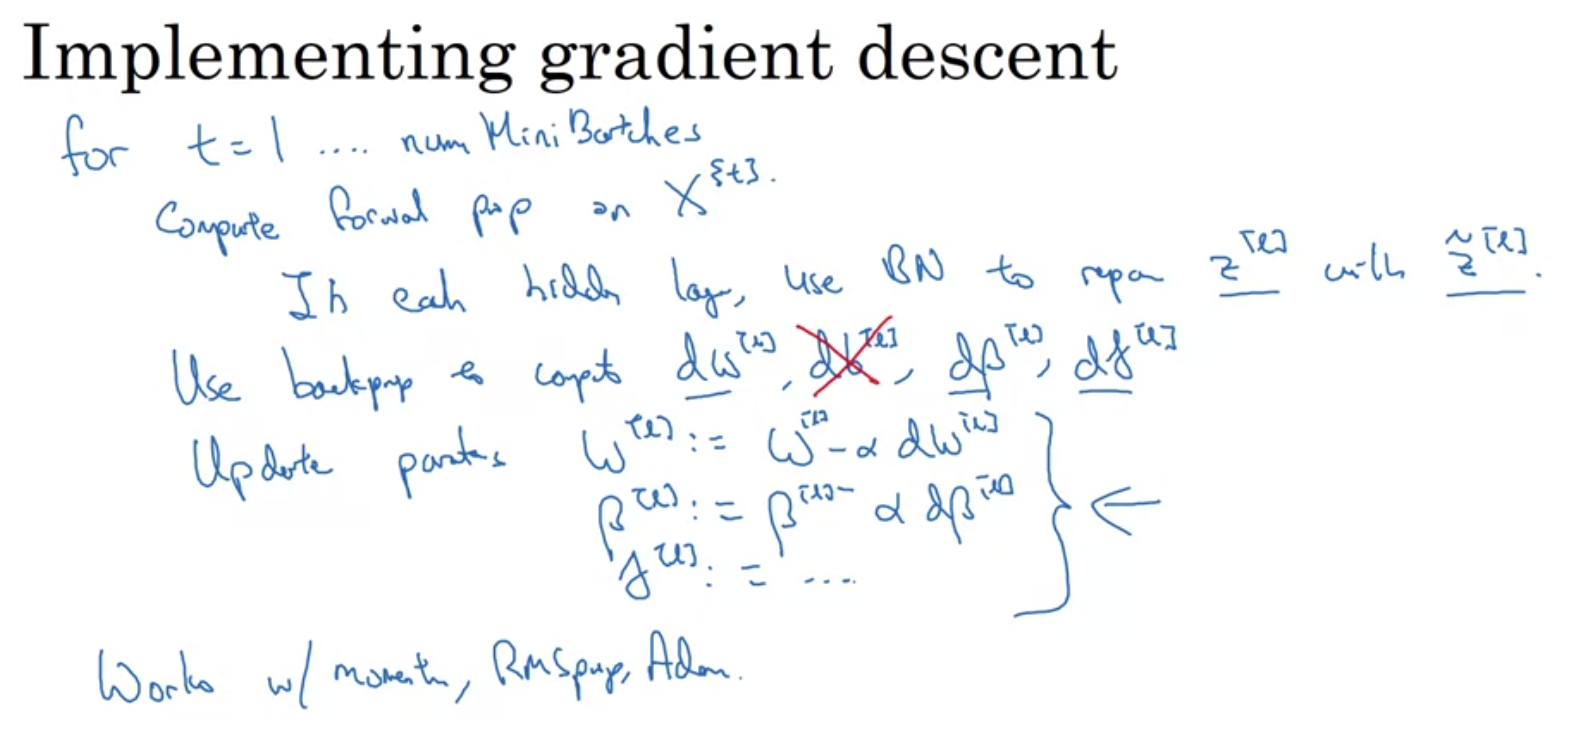 Implementing gradient descent
for t = 1 .... num MiniBatches
Compute forward prop on X^{t}.
In each hidden layer, use BN to replace z^[l] with z̃^[l].
Use backprop to compute dw^[l], db^[l], dβ^[l], dγ^[l]
Update parameters W^[l] := W^[l] - α dw^[l]
β^[l] := β^[l] - α dβ^[l]
γ^[l] := ...
←
Works w/ momentum, RMSprop, Adam.